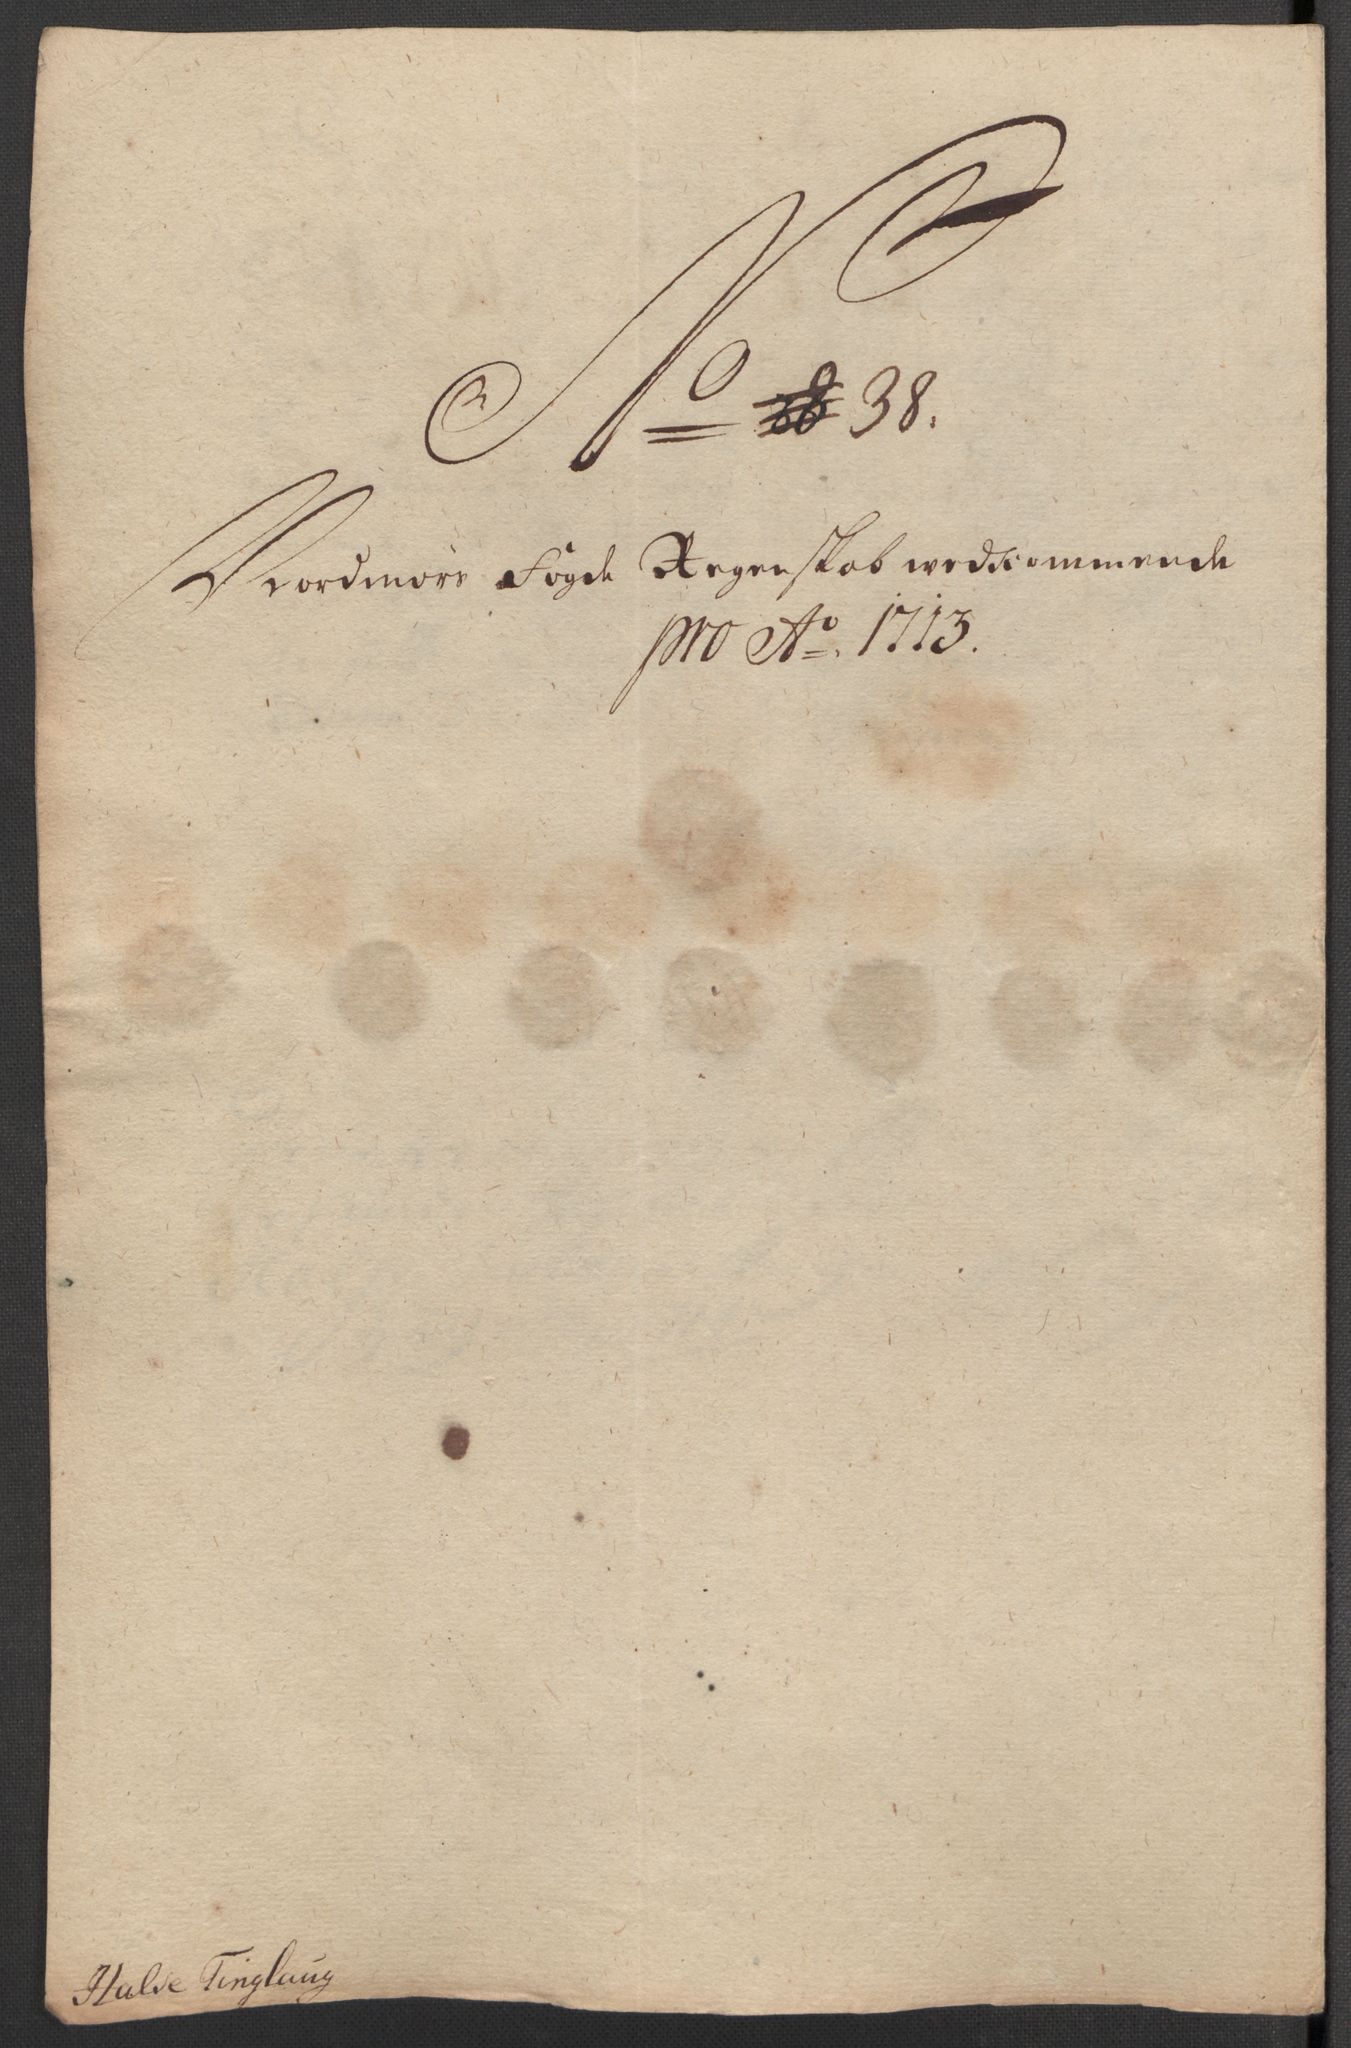 No 38.
Nordmörs Fögde Regenskab wedkommende
pro Ao. 1713.
Halse Tinglaug